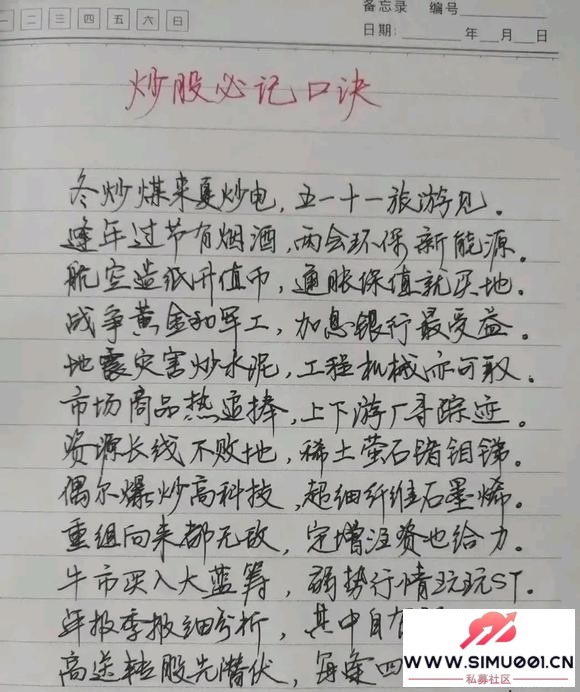 一 二 三 四 五 六 日
备忘录 编号
日期: 年 月 日
炒股必记口诀
冬炒煤来夏炒电,五一十一旅游见。
逢年过节有烟酒,两会环保新能源。
航空造纸升值币,通胀保值就买地。
战争黄金和军工,加息银行最受益。
地震灾害炒水泥,工程机械亦可取。
市场商品热追捧,上下游厂寻踪迹。
资源长线不败地,稀土萤石锗钼锑。
偶尔爆炒高科技,超细纤维石墨烯。
重组向来都无敌,定增注资也给力。
牛市买入大蓝筹,弱势行情玩玩ST。
年报季报细分析,其中自有
高送转股先潜伏,每逢四
WWW.SIMU001.CN
私募社区